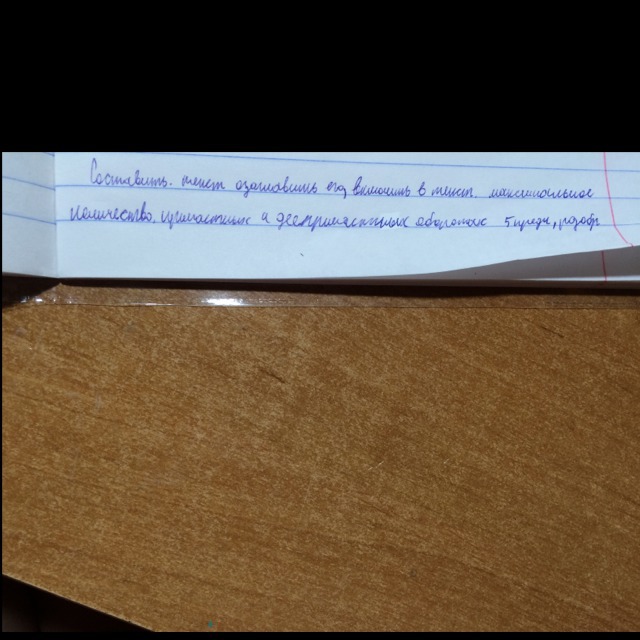 Составить. текст озаглавить его, включить в текст. максимальное
количество, причастных и деепричастных оборотах 5 предл,